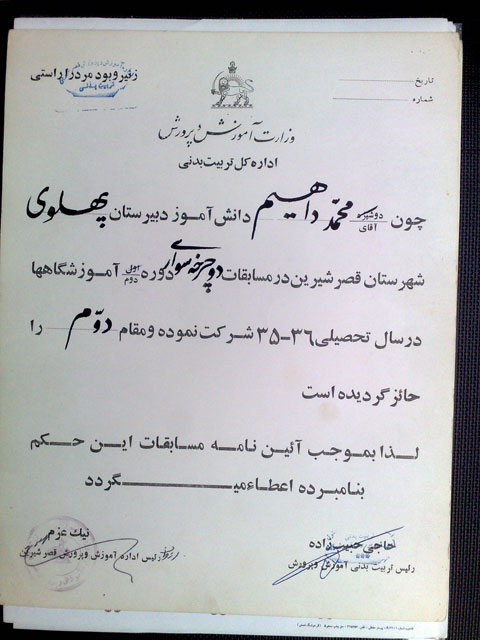 ز نیرو بود مرد را راستی
تاریخ
شماره
وزارت آموزش و پرورش
اداره کل تربیت بدنی
چون دوشیزه آقای محمد داهیم دانش آموز دبیرستان پهلوی
شهرستان قصر شیرین در مسابقات دوچرخه سواری دوره اول دوم آموزشگاهها
در سال تحصیلی ۳۶-۳۵ شرکت نموده و مقام دوّم را
حائز گردیده است
لذا بموجب آئین نامه مسابقات این حکم
بنامبرده اعطاء میگردد
نیک عزم
رئیس اداره آموزش و پرورش قصر شیرین
حاجی حبیب زاده
رئیس تربیت بدنی آموزش و پرورش